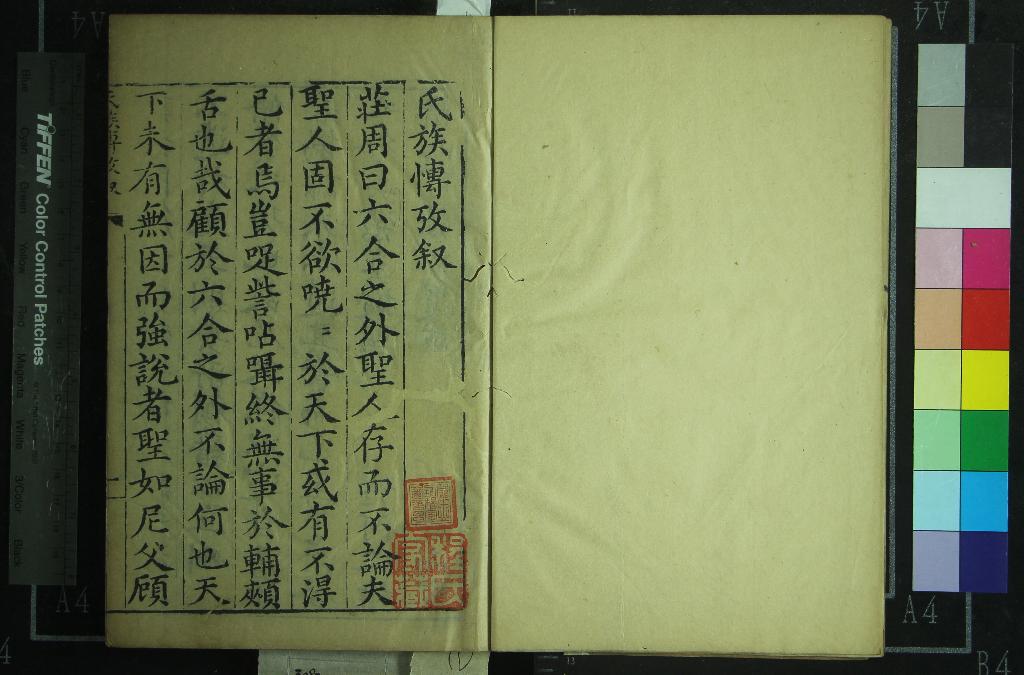 氏族慱攷叙
莊周曰六合之外聖人存而不論夫
聖人固不欲曉〻於天下或有不得
已者焉豈哫訾呫聶終無事於輔頰
舌也哉顧於六合之外不論何也天
下未有無因而強說者聖如尼父顧
TIFFEN Color Control Patches
Blue
Cyan
Green
Yellow
Red
Magenta
White
3/Color
Black
A4
A4
A4
B4